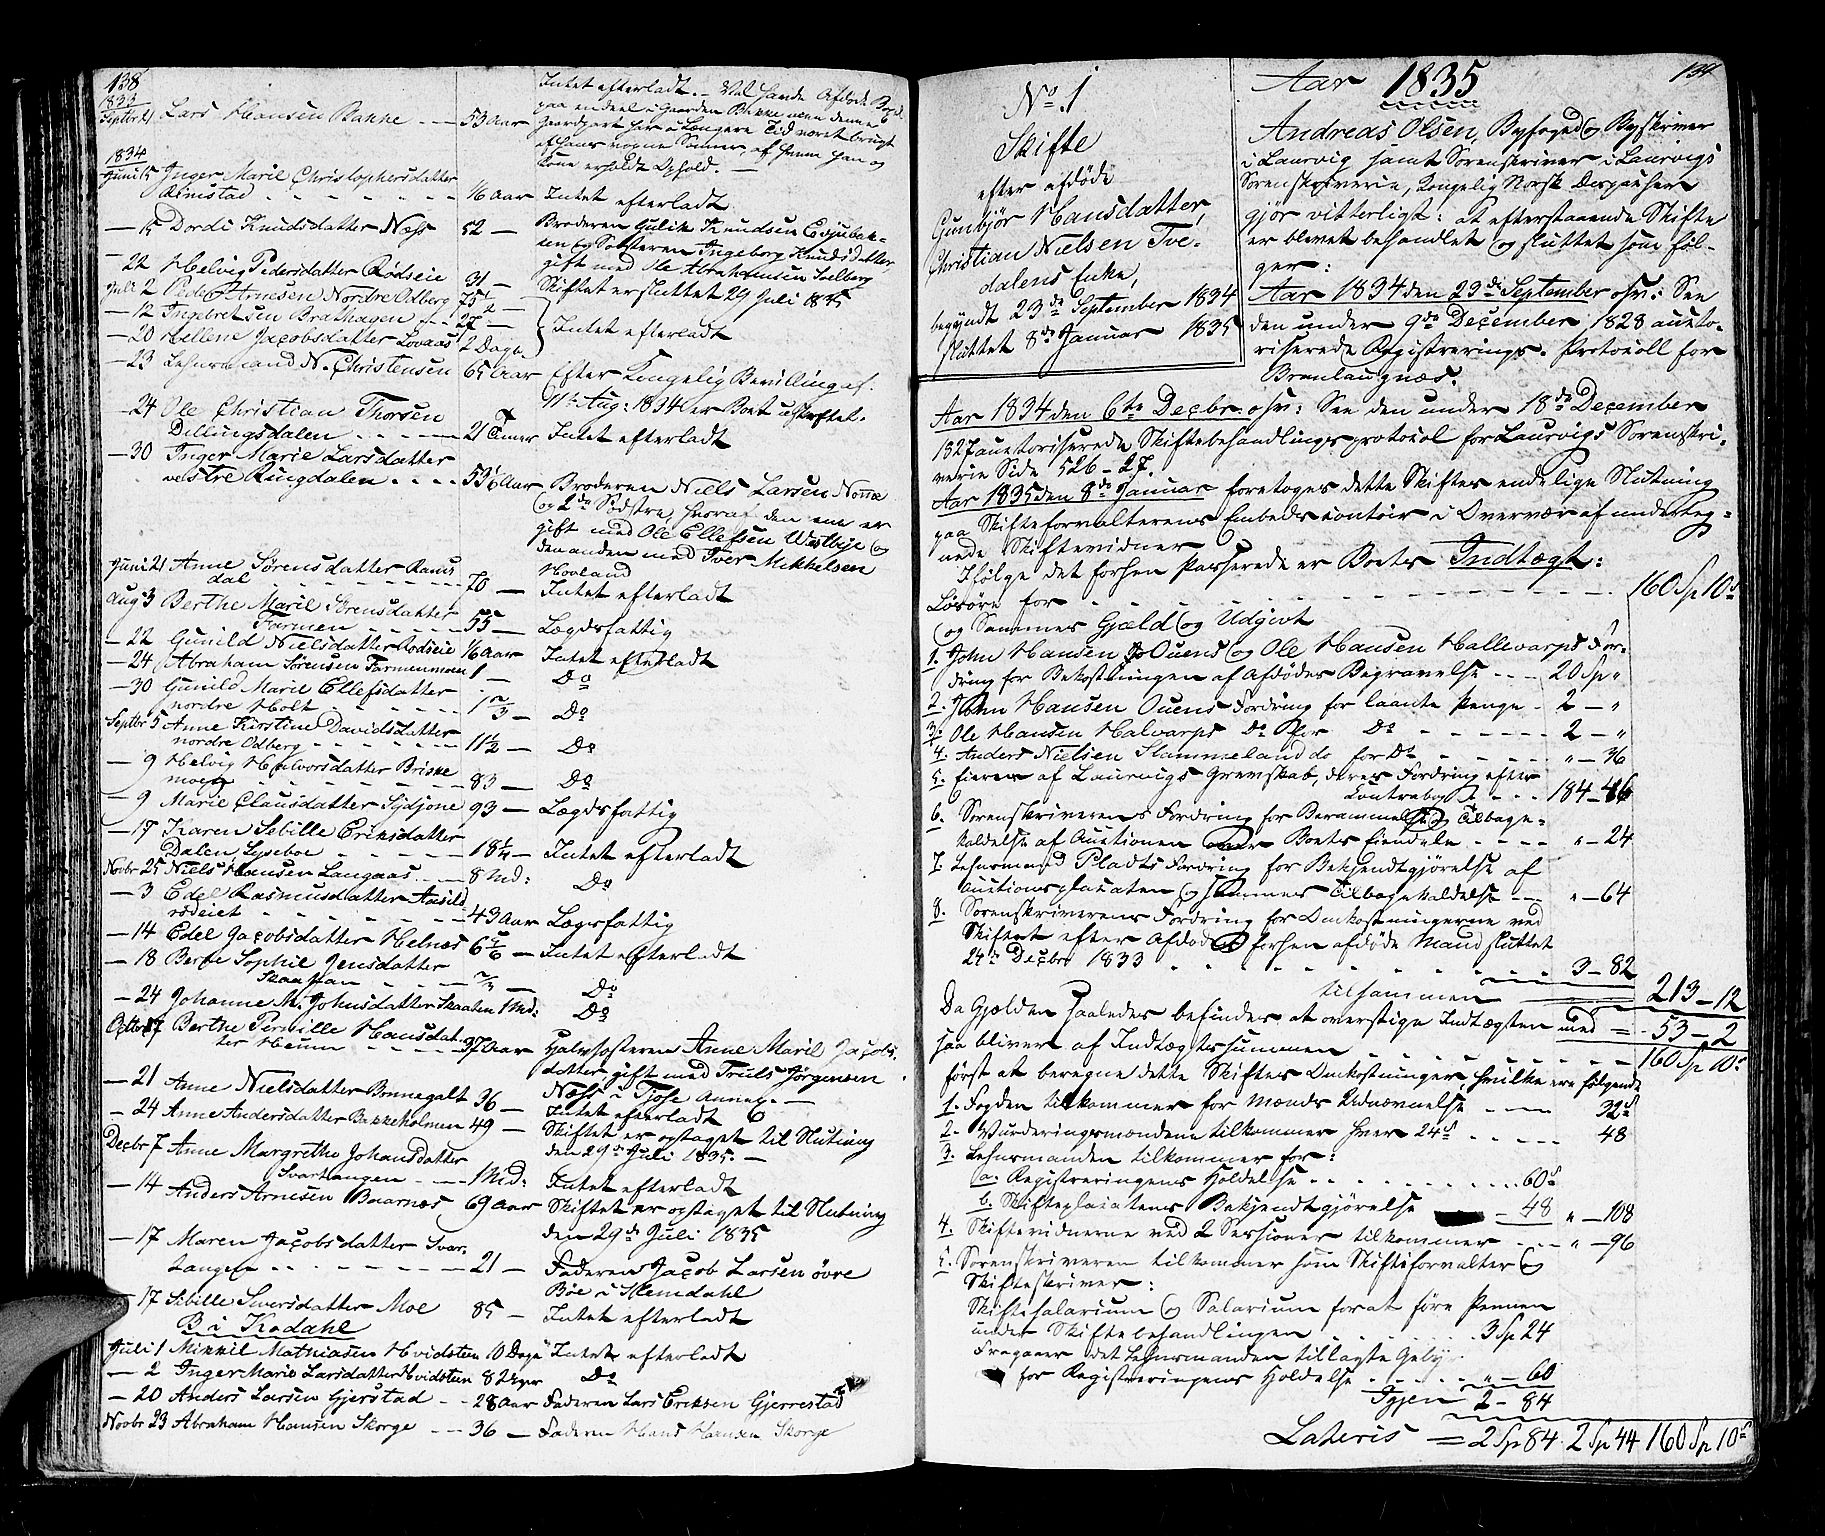 138
1833
Septbr 21 Lars Hansen Bakke - - 53 Aar Intet efterladt. - Vel havde Afdøde Bopæl
paa endeel i Gaarden Bakke men denne
Gaardpart har i længere Tid været brugt
af hans egne Sønner, af hvem han og
Kone erholdt Ophold. -
1834
Juni 15 Inger Marie Christophersdatter
Rimstad - - - 16 Aar Intet efterladt
- 15 Dordi Knudsdatter Næss 52 - Broderen Gulik Knudsen
og Søsteren Ingeborg Knudsdatter,
gift med Ole Abrahamsen Solberg
- 22 Helvig Pedersdatter Rødseie 31 - Skiftet er sluttet 29 Juli 1835
Juli 2 Peder Arnesen Nordre Odberg 75½ -
- 12 Ingebret Brathagen - - 27 - Intet efterladt
- 20 Hellene Jacobsdatter Lovaas 2 Dage
- 23 Lehnsmand N. Christensen 65 Aar Efter Kongelig Bevilling af
11te Aug: 1834 er Boet uskiftet.
- 24 Ole Christian Thorsen
Dillingsdalen - - - 21 Timer Intet efterladt
- 30 Inger Marie Larsdatter
vestre Ringdalen - - - 53½ Aar Broderen Niels Larsen
og 2de Søstre, hvoraf den ene er
gift med Ole Ellefsen Westbye og
den anden med Iver Mikkelsen
Hovland
Juni 21 Anne Sørensdatter Ramsdal
- - - 70 - Intet efterladt
Aug 3 Berthe Marie Sørensdatter
Farmen - - - 55 - Lægdsfattig
- 22 Gunild Nielsdatter Rødseie 16 Aar Intet efterladt
- 24 Abraham Sørensen Farmenmoen 1 - Do
- 30 Gunild Marie Ellefsdatter
nordre Holt - - - 1⅔ - Do
Septbr 5 Anne Kirstine Davidsdatter
nordre Odberg - - - 11½ - Do
- 9 Helvig Halvorsdatter Briske
moen - - - 83 - Do
- 9 Marie Clausdatter Sydjone 93 - Lægdsfattig
- 17 Karen Sebille Eriksdatter
Dalen Lyseboe - - - 18¼ - Intet efterladt
Novbr 25 Niels Hansen Langaas - - 8 Md: Do
- 3 Edel Rasmusdatter
rødeiet - - - 43 Aar Lægdsfattig
- 14 Edel Jacobsdatter Helnæs 6 - Intet efterladt
- 18 Berthe Sophie Jensdatter
Skaatan - - - Do
- 24 Johanne M. Johnsdatter Skaaten 1 Md: Do
Octbr 17 Berthe Pernille Hansdatter
Heum - - - 37 Aar Halvsøsteren Anne Marie Jacobsdatter
gift med Truls Jørgensen
Næss i Tjøse Annex. -
- 21 Anne Nielsdatter Brunegalt 36 - Intet efterladt
- 24 Anne Andersdatter Bakkeholmen 49 - Skiftet er optaget til Slutning
den 29de Juli 1835. -
Decbr 7 Anne Margrethe Johansdatter
Svartangen - - 1 Md: Intet efterladt
- 14 Anders Arnesen Baarnæs 69 Aar Skiftet er optaget til Slutning
den 29de Juli 1835
- 17 Maren Jacobsdatter Svar-
tangen - - - 21 - Faderen Jacob Larsen øvre
Bøe i Slemdahl
- 17 Sibille Siversdatter Moe 85 - Intet efterladt
B i Kodahl
Juli 1 Mikkel Mathiasen Hvidsten 10 Dage Intet efterladt
- 2 Inger Marie Larsdatter Hvidsten 82 Aar Do
- 20 Anders Larsen Gjerstad - - 28 Aar Faderen Lars Eriksen Gjerrestad
Novbr 23 Abraham Hansen Skorge - - 36 - Faderen Hans Hansen Skorge
139
No. 1
Skifte
efter afdøde
Gunbjør Hansdatter,
Christian Nielsen Tve-
dalens Enke,
begyndt 23de September 1834
sluttet 8de Januar 1835
Aar 1835
Andreas Olsen, Byfoged og Byskriver
i Laurvig samt Sorenskriver i Laurvigs
Sorenskriverie, Kongelig Norsk
gjør vitterligt: at efterstaaende Skifte
er blevet behandlet og sluttet som føl-
ger:
Aar 1834 den 23de September o.s.v.: See
den under 9de December 1828 aucto-
riserede Registrerings-Protocoll for
Brunlaugnæs.
Aar 1834 den 6te Decbr. o.s.v: See den under 18de December
1827 auctoriserede Skiftebehandlingsprotocol for Laurvigs Sorenskri-
verie Side 526-27.
Aar 1835 den 8de Januar foretoges dette Skiftes endelige Slutning
paa Skifteforvalterens Embedscontoir i Overvær af underteg-
nede Skiftevidner
Ifølge det forhen Passerede er Boets Indtægt:
Løsøre for - - - 160 Sp 10 s
og Sammes Gjæld og Udgivt
1. John Hansen Ouens og Ole Hansen Hallevarps For-
dring for Bekostningen af Afdødes Begravelse - - - 20 Sp "
2. John Hansen Ouens Fordring for laante Penge - 2 - "
3. Ole Hansen Halvarps Do for Do - - - 2 - "
4. Anders Nielsen Stammeland do for Do - - - " - 36
5. Eieren af Laurvigs Grevskab, deres Fordring efter
Contrabog - - - 184 - 46
6. Sorenskriverens Fordring for Berammelse og Tilbage-
kaldelse af Auctionen over Boets Eiendele - - - " - 24
7. Lehnsmand Pladts Fordring for Bekjendtgjørelse af
Auctionsplacaten og sammes Tilbagekaldelse - - - " - 64
8. Sorenskriverens Fordring for Omkostningerne ved
Skiftet efter Afdødes forhen afdøde Mand sluttet
24de Decbr 1833 - - - 3 - 82
tilsammen 213 - 12
Da Gjælden saaledes befindes at overstige Indtægten med = 53 - 2
saa bliver af Indtægtssummen - - - 160 Sp 10 s
først at beregne dette Skiftes Omkostninger, hvilke ere følgende
1. Fogden tilkommer for Mænds Udnævnelse - - - 32 s
2. Vurderingsmændene tilkommer hver 24 s - - - 48
3. Lehnsmanden tilkommer for:
a. Registreringens Holdelse - - - 60 s
b. Skifteplacatens Bekjendtgjørelse - 48 " - 108
4. Skiftevidnerne ved 2 Sessioner tilkommer - - - " - 96
5. Sorenskriveren tilkommer som Skifteforvalter og
Skifteskriver:
Skiftesalarium og Salarium for at føre Pennen
under Skiftebehandlingen - - - 3 Sp 24
Fragaaer det Lehnsmanden tillagte Gebyr
for Registreringens Holdelse - - - " - 60
Igjen 2 - 84
Lateris = 2 Sp 84. 2 Sp 44 160 Sp 10 s